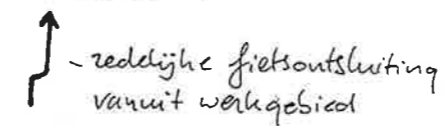 - redelijke fietsontsluiting
vanuit werkgebied